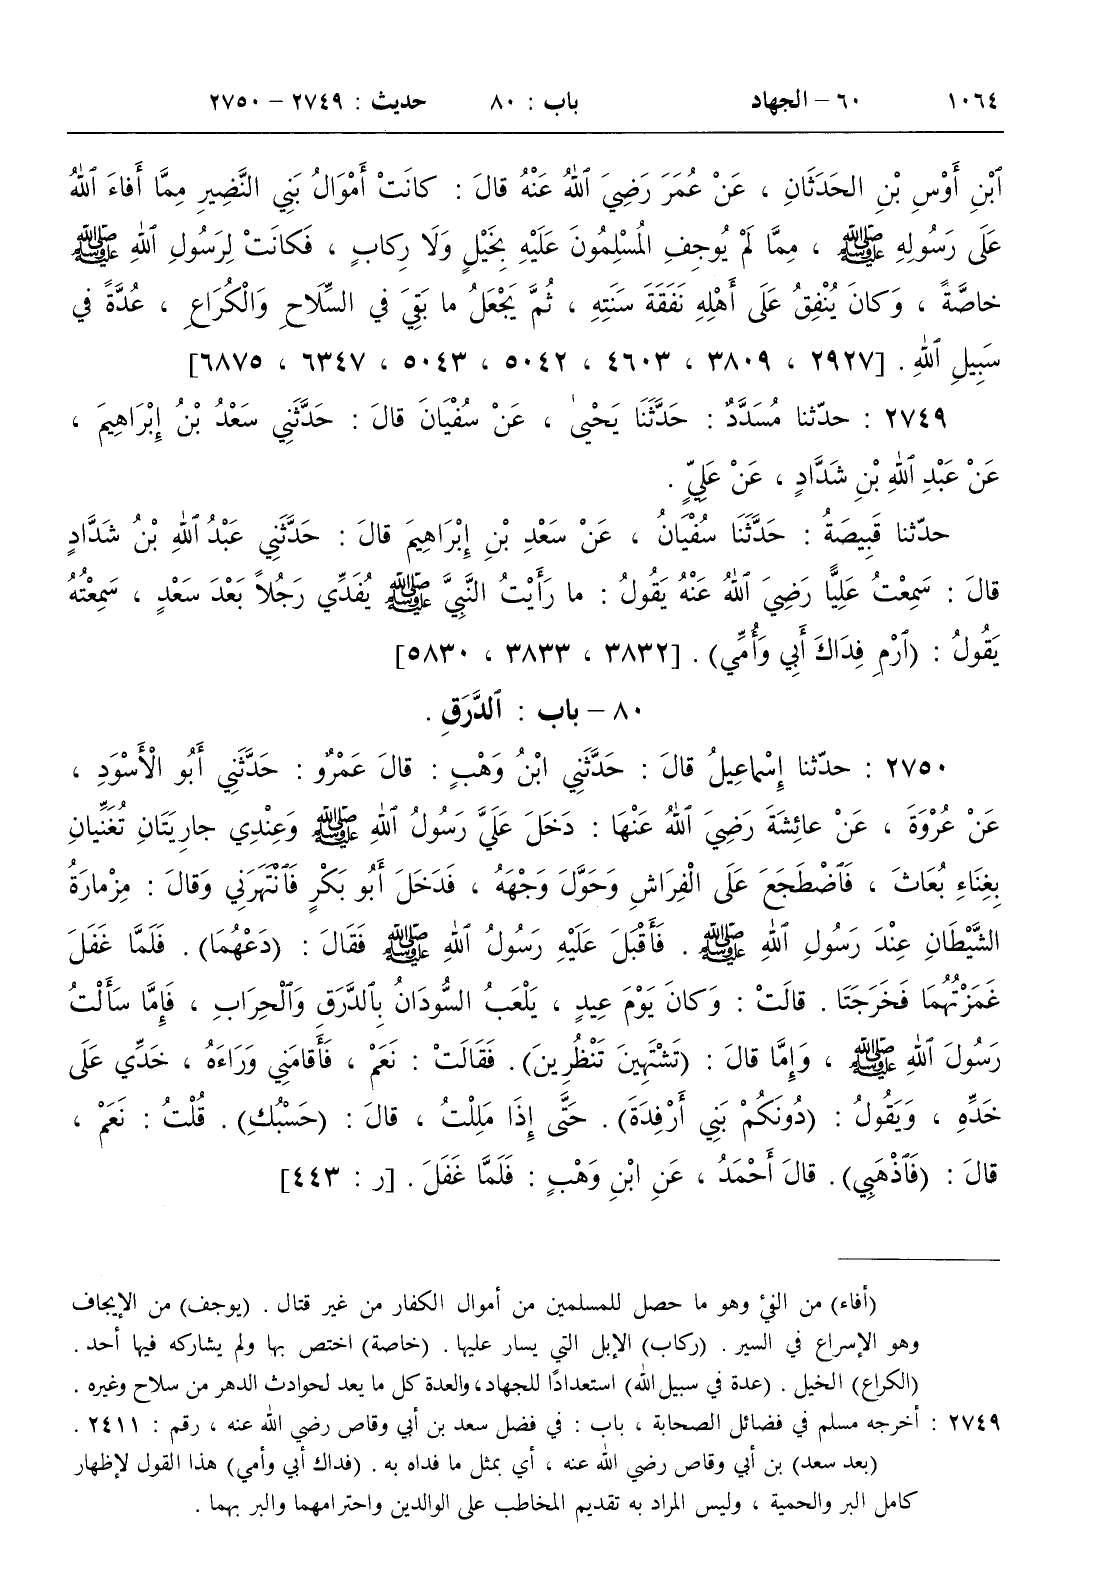 ١٠٦٤ ٦٠ – الجهاد باب : ٨٠ حديث : ٢٧٤٩ – ٢٧٥٠
ٱبْنِ أَوْسِ بْنِ الحَدَثَانِ ، عَنْ عُمَرَ رَضِيَ ٱللهُ عَنْهُ قالَ : كانَتْ أَمْوَالُ بَنِي النَّضِيرِ مِمَّا أَفاءَ ٱللهُ
عَلَى رَسُولِهِ ﷺ ، مِمَّا لَمْ يُوجِفِ المُسْلِمُونَ عَلَيْهِ بِخَيْلٍ وَلَا رِكابٍ ، فَكانَتْ لِرَسُولِ ٱللهِ ﷺ
خاصَّةً ، وَكانَ يُنْفِقُ عَلَى أَهْلِهِ نَفَقَةَ سَنَتِهِ ، ثُمَّ يَجْعَلُ ما بَقِيَ في السِّلَاحِ وَالْكُرَاعِ ، عُدَّةً في
سَبِيلِ ٱللهِ . [٢٩٢٧ ، ٣٨٠٩ ، ٤٦٠٣ ، ٥٠٤٢ ، ٥٠٤٣ ، ٦٣٤٧ ، ٦٨٧٥]
٢٧٤٩ : حدّثنا مُسَدَّدٌ : حَدَّثَنَا يَحْيىٰ ، عَنْ سُفْيَانَ قالَ : حَدَّثَنِي سَعْدُ بْنُ إِبْرَاهِيمَ ،
عَنْ عَبْدِ ٱللهِ بْنِ شَدَّادٍ ، عَنْ عَلِيٍّ .
حدّثنا قَبِيصَةُ : حَدَّثَنَا سُفْيَانُ ، عَنْ سَعْدِ بْنِ إِبْرَاهِيمَ قالَ : حَدَّثَنِي عَبْدُ ٱللهِ بْنُ شَدَّادٍ
قالَ : سَمِعْتُ عَلِيًّا رَضِيَ ٱللهُ عَنْهُ يَقُولُ : ما رَأَيْتُ النَّبِيَّ ﷺ يُفَدِّي رَجُلاً بَعْدَ سَعْدٍ ، سَمِعْتُهُ
يَقُولُ : (ٱرْمِ فِدَاكَ أَبِي وَأُمِّي) . [٣٨٣٢ ، ٣٨٣٣ ، ٥٨٣٠]
٨٠ – باب : ٱلدَّرَقِ .
٢٧٥٠ : حدّثنا إِسْماعِيلُ قالَ : حَدَّثَنِي ابْنُ وَهْبٍ : قالَ عَمْرٌو : حَدَّثَنِي أَبُو الْأَسْوَدِ ،
عَنْ عُرْوَةَ ، عَنْ عائِشَةَ رَضِيَ ٱللهُ عَنْهَا : دَخَلَ عَلَيَّ رَسُولُ ٱللهِ ﷺ وَعِنْدِي جارِيَتَانِ تُغَنِّيَانِ
بِغِنَاءِ بُعَاثَ ، فَٱضْطَجَعَ عَلَى الْفِرَاشِ وَحَوَّلَ وَجْهَهُ ، فَدَخَلَ أَبُو بَكْرٍ فَٱنْتَهَرَنِي وَقالَ : مِزْمارَةُ
الشَّيْطَانِ عِنْدَ رَسُولِ ٱللهِ ﷺ . فَأَقْبَلَ عَلَيْهِ رَسُولُ ٱللهِ ﷺ فَقَالَ : (دَعْهُمَا) . فَلَمَّا غَفَلَ
غَمَزْتُهُمَا فَخَرَجَتَا . قالَتْ : وَكانَ يَوْمَ عِيدٍ ، يَلْعَبُ السُّودَانُ بِٱلدَّرَقِ وَٱلْحِرَابِ ، فَإِمَّا سَأَلْتُ
رَسُولَ ٱللهِ ﷺ ، وَإِمَّا قالَ : (تَشْتَهِينَ تَنْظُرِينَ) . فَقَالَتْ : نَعَمْ ، فَأَقامَنِي وَرَاءَهُ ، خَدِّي عَلَى
خَدِّهِ ، وَيَقُولُ : (دُونَكُمْ بَنِي أَرْفِدَةَ) . حَتَّى إِذَا مَلِلْتُ ، قالَ : (حَسْبُكِ) . قُلْتُ : نَعَمْ ،
قالَ : (فَٱذْهَبِي) . قالَ أَحْمَدُ ، عَنِ ابْنِ وَهْبٍ : فَلَمَّا غَفَلَ . [ر : ٤٤٣]
(أفاء) من الفيْ وهو ما حصل للمسلمين من أموال الكفار من غير قتال . (يوجف) من الإيجاف
وهو الإسراع في السير . (ركاب) الإبل التي يسار عليها . (خاصة) اختص بها ولم يشاركه فيها أحد .
(الكراع) الخيل . (عدة في سبيل الله) استعدادًا للجهاد، والعدة كل ما يعد لحوادث الدهر من سلاح وغيره .
٢٧٤٩ : أخرجه مسلم في فضائل الصحابة ، باب : في فضل سعد بن أبي وقاص رضي الله عنه ، رقم : ٢٤١١ .
(بعد سعد) بن أبي وقاص رضي الله عنه ، أي بمثل ما فداه به . (فداك أبي وأمي) هذا القول لإظهار
كامل البر والحمية ، وليس المراد به تقديم المخاطب على الوالدين واحترامهما والبر بهما .